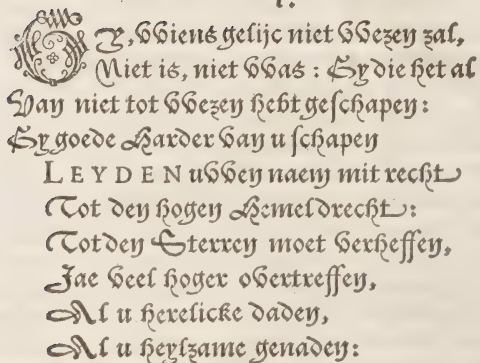 I.
GY, wiens gelijc niet wezen zal,
Niet is, niet was: Gy die het al
Van niet tot wezen hebt geschapen:
Gy goede Harder van u schapen
LEYDEN uwen naem mit recht
Tot den hogen Hemel drecht:
Tot den Sterren moet verheffen,
Jae veel hoger overtreffen,
Al u herelicke daden,
Al u heylzame genaden: